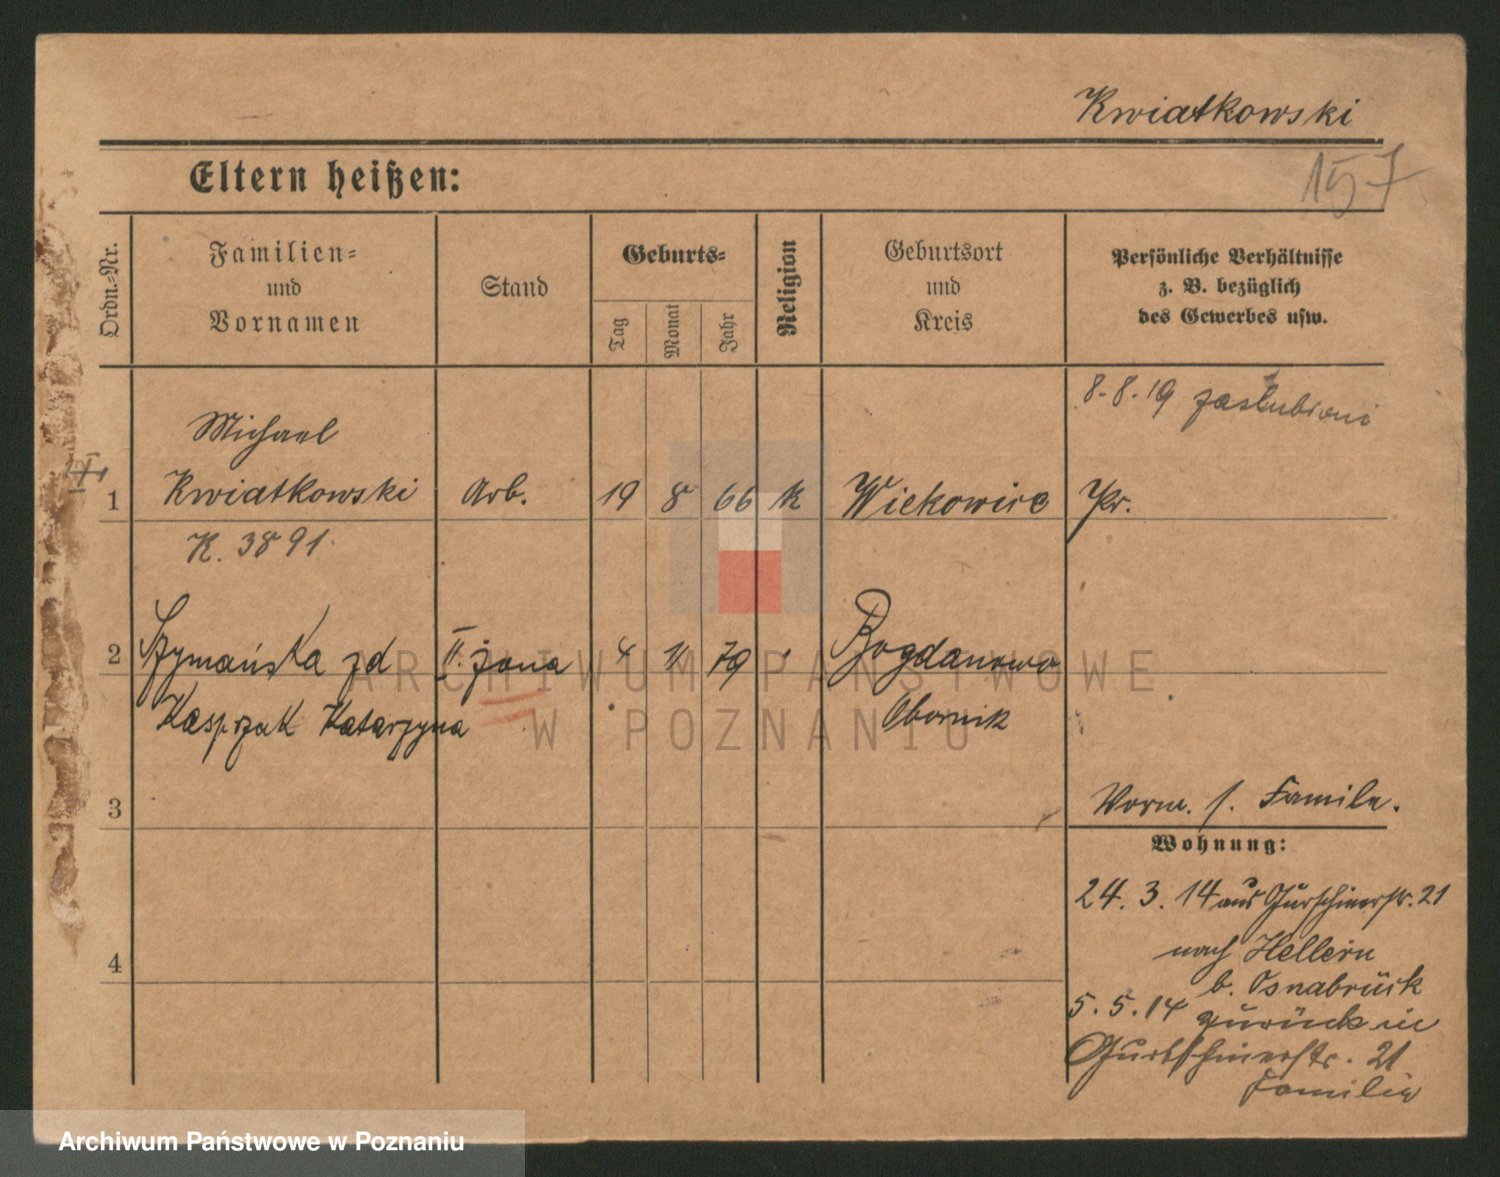 Kwiatkowski
157
Eltern heißen:
Ordn.-Nr.
Familien-
und
Vornamen
Stand
Geburts-
Tag
Monat
Jahr
Religion
Geburtsort
und
Kreis
Persönliche Verhältnisse
z. B. bezüglich
des Gewerbes usw.
8.8.19 zaślubieni
Michael
1 Kwiatkowski Arb. 19 8 66 k Wiekowice Pr.
K. 3891.
2 Szymańska zd II. żona 4 11 79 " Bogdanowo
Kasprzak Katarzyna Obornik
3
Vorm. s. Familie.
Wohnung:
24. 3. 14 aus Gurtschinerstr. 21
nach Hellern
b. Osnabrück
5. 5. 14 zurück in
Gurtschinerstr. 21
Familie
4
ARCHIWUM PAŃSTWOWE
W POZNANIU
Archiwum Państwowe w Poznaniu